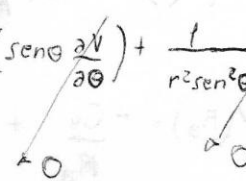 (senθ ∂V/∂θ) + 1/r²sen²θ
0 0